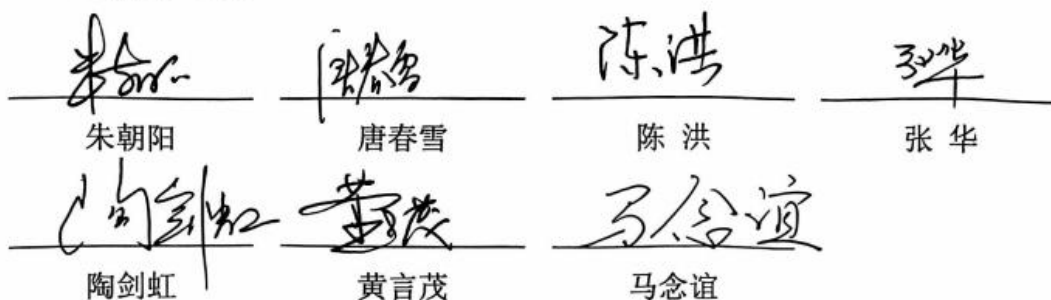 朱朝阳 唐春雪 陈洪 张华
朱朝阳 唐春雪 陈 洪 张 华
陶剑虹 黄言茂 马念谊
陶剑虹 黄言茂 马念谊